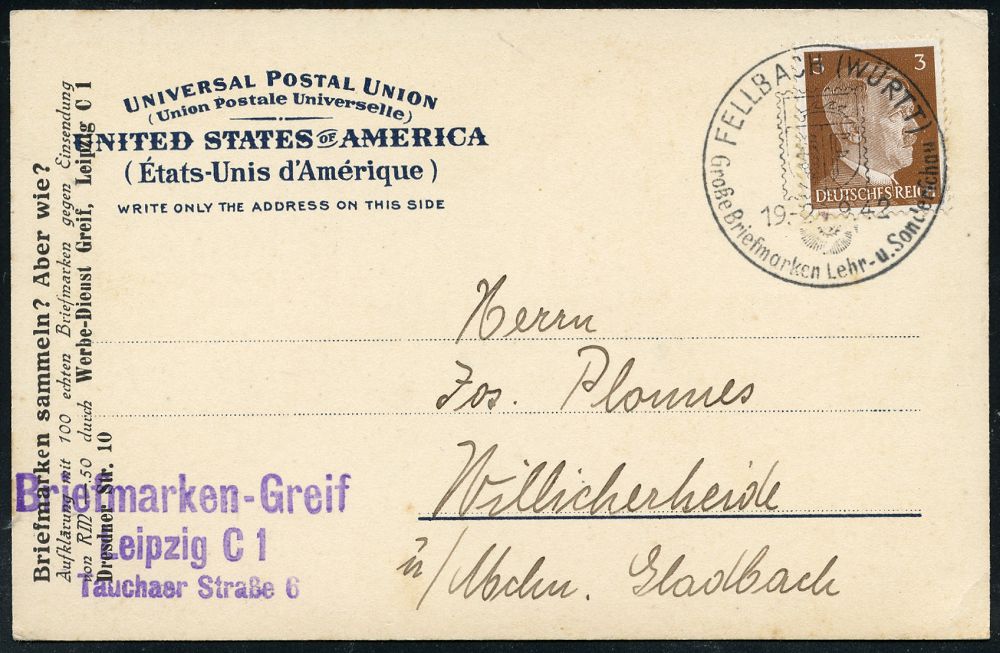 UNIVERSAL POSTAL UNION
(Union Postale Universelle)
UNITED STATES OF AMERICA
(États-Unis d'Amérique)
WRITE ONLY THE ADDRESS ON THIS SIDE
3 3
DEUTSCHES REICH
FELLBACH (WÜRTT)
19.-2 .9.42
Große Briefmarken Lehr- u. Sonderschau
Briefmarken sammeln? Aber wie?
Aufklärung mit 100 echten Briefmarken gegen Einsendung
von RM .50 durch Werbe-Dienst Greif, Leipzig C 1
Dresdner Str. 10
Herrn
Jos. Plonnes
Willicherheide
ü/Mchn. Gladbach
Briefmarken-Greif
Leipzig C 1
Tauchaer Straße 6